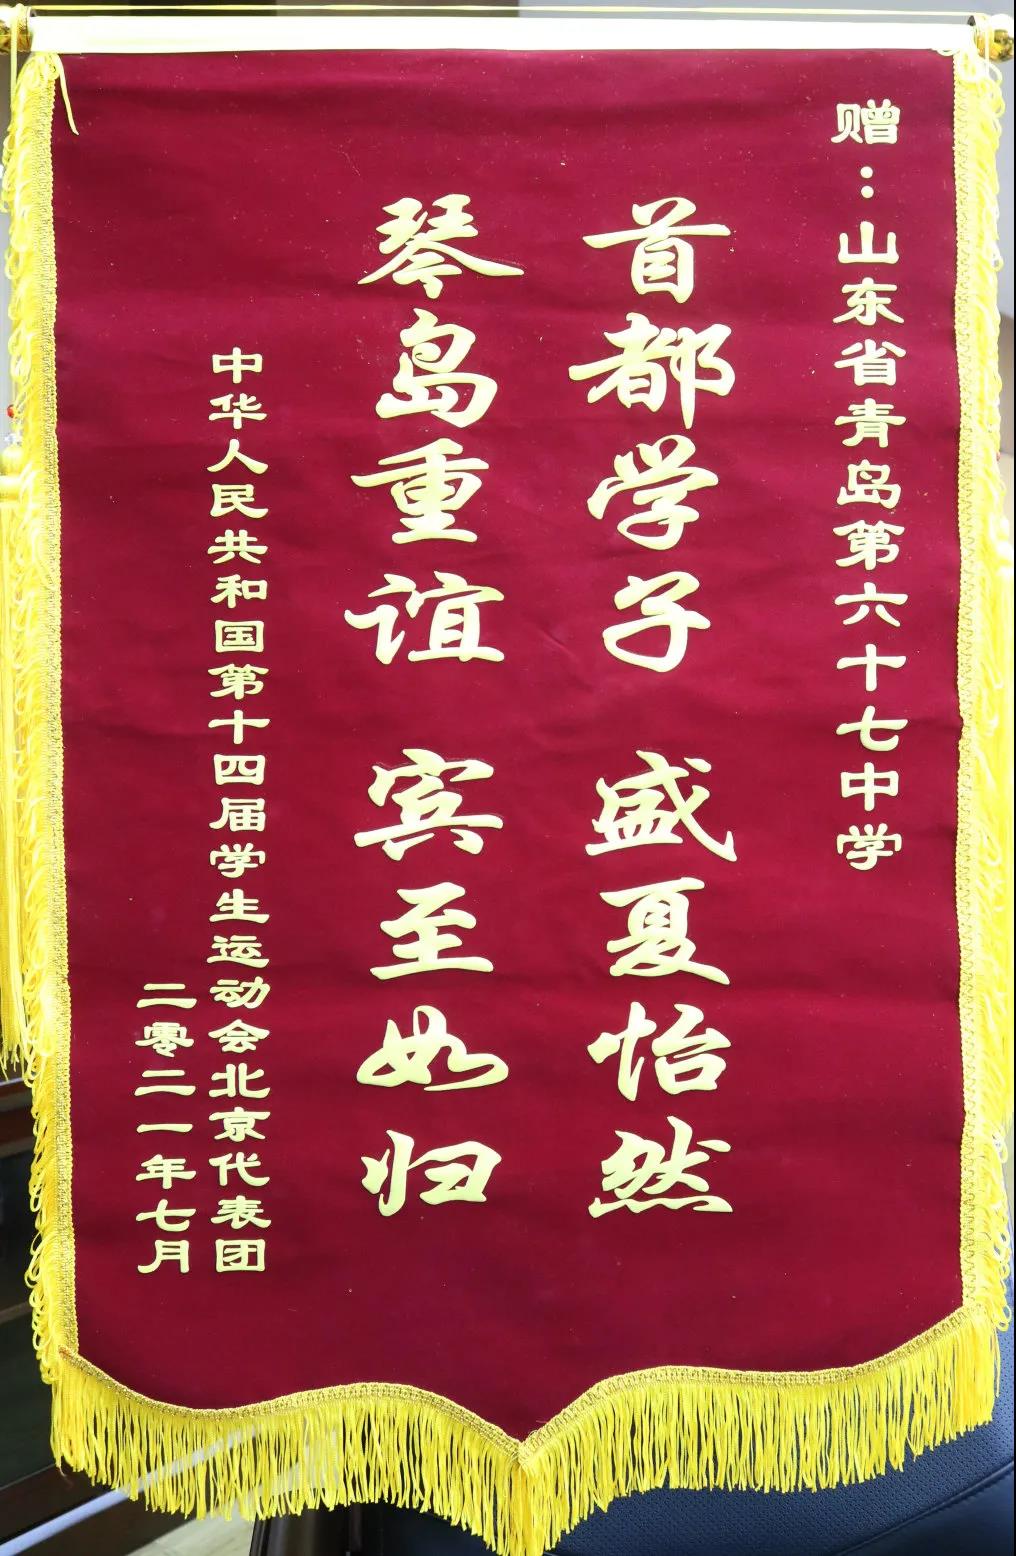 赠：山东省青岛第六十七中学
首都学子 盛夏怡然
琴岛重谊 宾至如归
中华人民共和国第十四届学生运动会北京代表团
二零二一年七月